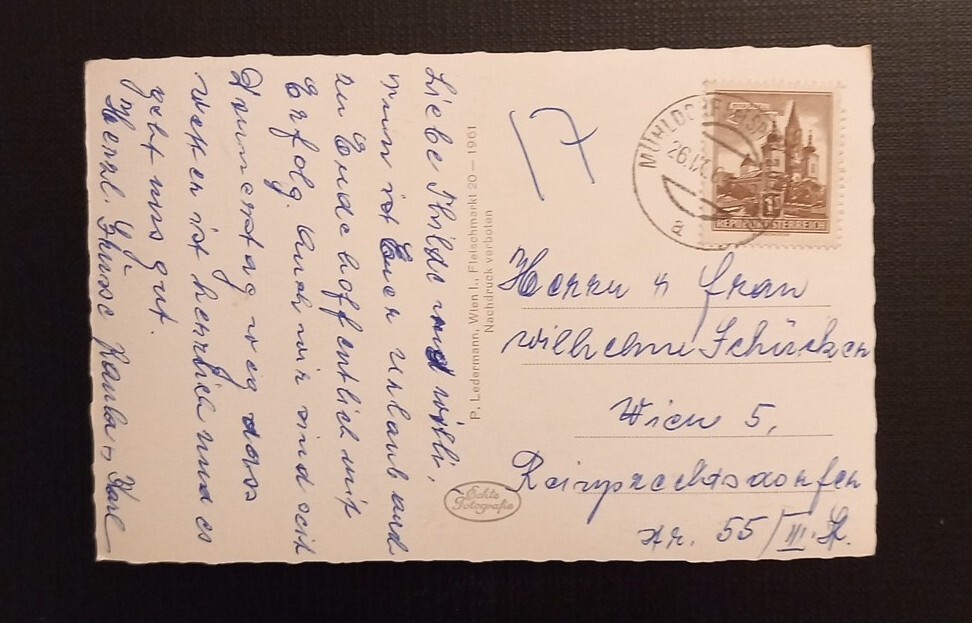 Liebe Thilde und Willi,
nun ist Euer Urlaub auch
zu Ende hoffentlich mit
Erfolg. Auch wir sind seit
Donnerstag weg dass
Wetter ist herrlich und es
geht uns gut.
Herzl. Grüsse u Karl
P. Ledermann, Wien I., Fleischmarkt 20 — 1961
Nachdruck verboten
Echte
Fotografie
MÜHLDORF
26.IX.
a
1
REPUBLIK ÖSTERREICH
Herrn u Frau
Wilhelm Schücker
Wien 5,
Reinprechtsdorfer
str. 55/III. St.